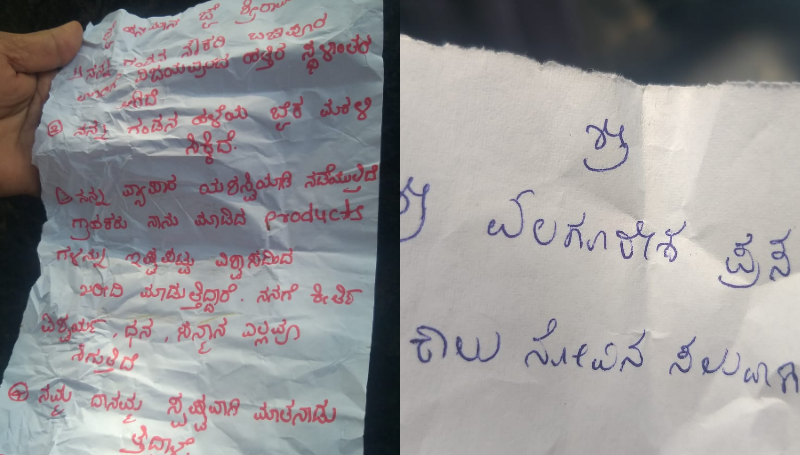 ನನ್ನ ಗಂಡನ
ಹತ್ತಿರ ಸ್ಥಳಾಂತರ
ಆಗಿದೆ
② ನನ್ನ ಗಂಡನ ಹಳೆಯ ಬೈಕ ಮರಳಿ
ಸಿಕ್ಕಿದೆ.
ನನ್ನ ವ್ಯಾಪಾರ ಯಶಸ್ವಿಯಾಗಿ ನಡೆಯುತ್ತಿದೆ
ಗ್ರಾಹಕರು ನಾನು ಮಾಡಿದ Products
ಗಳನ್ನು ಇಷ್ಟಪಟ್ಟು ವಿಶ್ವಾಸದಿಂದ
ಖರೀದಿ ಮಾಡುತ್ತಿದ್ದಾರೆ. ನನಗೆ ಕೀರ್ತಿ
ಐಶ್ವರ್ಯ, ಧನ, ಸನ್ಮಾನ ಎಲ್ಲವೂ
ಸಿಗುತ್ತಿದೆ
④ ನಮ್ಮ ದಾನಮ್ಮ ಸ್ಪಷ್ಟವಾಗಿ ಮಾತನಾಡು
ತ್ತಿದಾಳೆ.
ಶ್ರೀ
ಶ್ರೀ ಪ್ರಸ
ಕಾಲು ನೋವಿನ ಸಲುವಾಗಿ